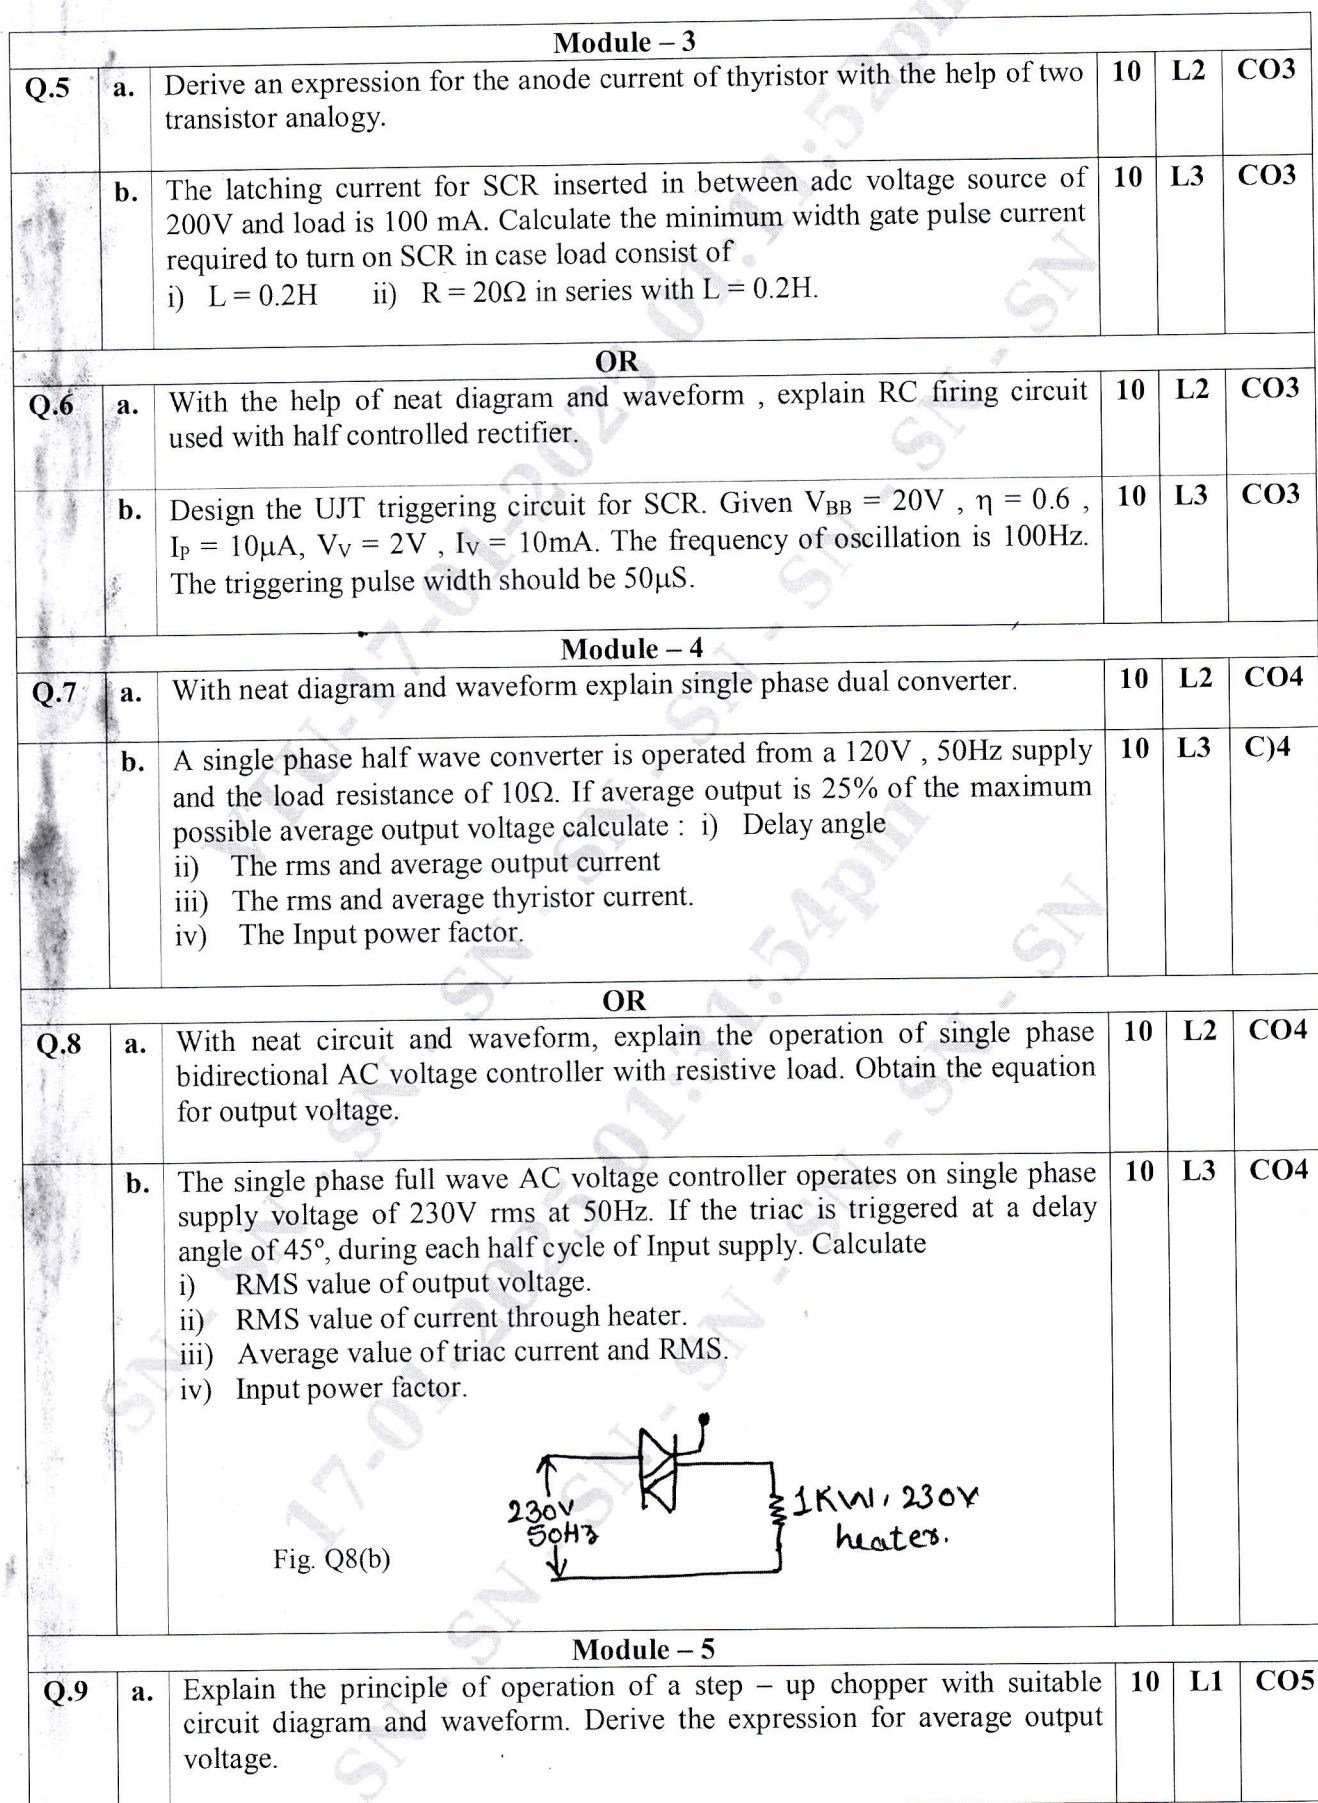 Module – 3
Q.5 a. Derive an expression for the anode current of thyristor with the help of two 10 L2 CO3
transistor analogy.
b. The latching current for SCR inserted in between adc voltage source of 10 L3 CO3
200V and load is 100 mA. Calculate the minimum width gate pulse current
required to turn on SCR in case load consist of
i) L = 0.2H ii) R = 20Ω in series with L = 0.2H.
OR
Q.6 a. With the help of neat diagram and waveform , explain RC firing circuit 10 L2 CO3
used with half controlled rectifier.
b. Design the UJT triggering circuit for SCR. Given VBB = 20V , η = 0.6 , 10 L3 CO3
IP = 10μA, VV = 2V , IV = 10mA. The frequency of oscillation is 100Hz.
The triggering pulse width should be 50μS.
Module – 4
Q.7 a. With neat diagram and waveform explain single phase dual converter. 10 L2 CO4
b. A single phase half wave converter is operated from a 120V , 50Hz supply 10 L3 C)4
and the load resistance of 10Ω. If average output is 25% of the maximum
possible average output voltage calculate : i) Delay angle
ii) The rms and average output current
iii) The rms and average thyristor current.
iv) The Input power factor.
OR
Q.8 a. With neat circuit and waveform, explain the operation of single phase 10 L2 CO4
bidirectional AC voltage controller with resistive load. Obtain the equation
for output voltage.
b. The single phase full wave AC voltage controller operates on single phase 10 L3 CO4
supply voltage of 230V rms at 50Hz. If the triac is triggered at a delay
angle of 45º, during each half cycle of Input supply. Calculate
i) RMS value of output voltage.
ii) RMS value of current through heater.
iii) Average value of triac current and RMS.
iv) Input power factor.
230V
50Hz
1KW, 230V
heater.
Fig. Q8(b)
Module – 5
Q.9 a. Explain the principle of operation of a step – up chopper with suitable 10 L1 CO5
circuit diagram and waveform. Derive the expression for average output
voltage.